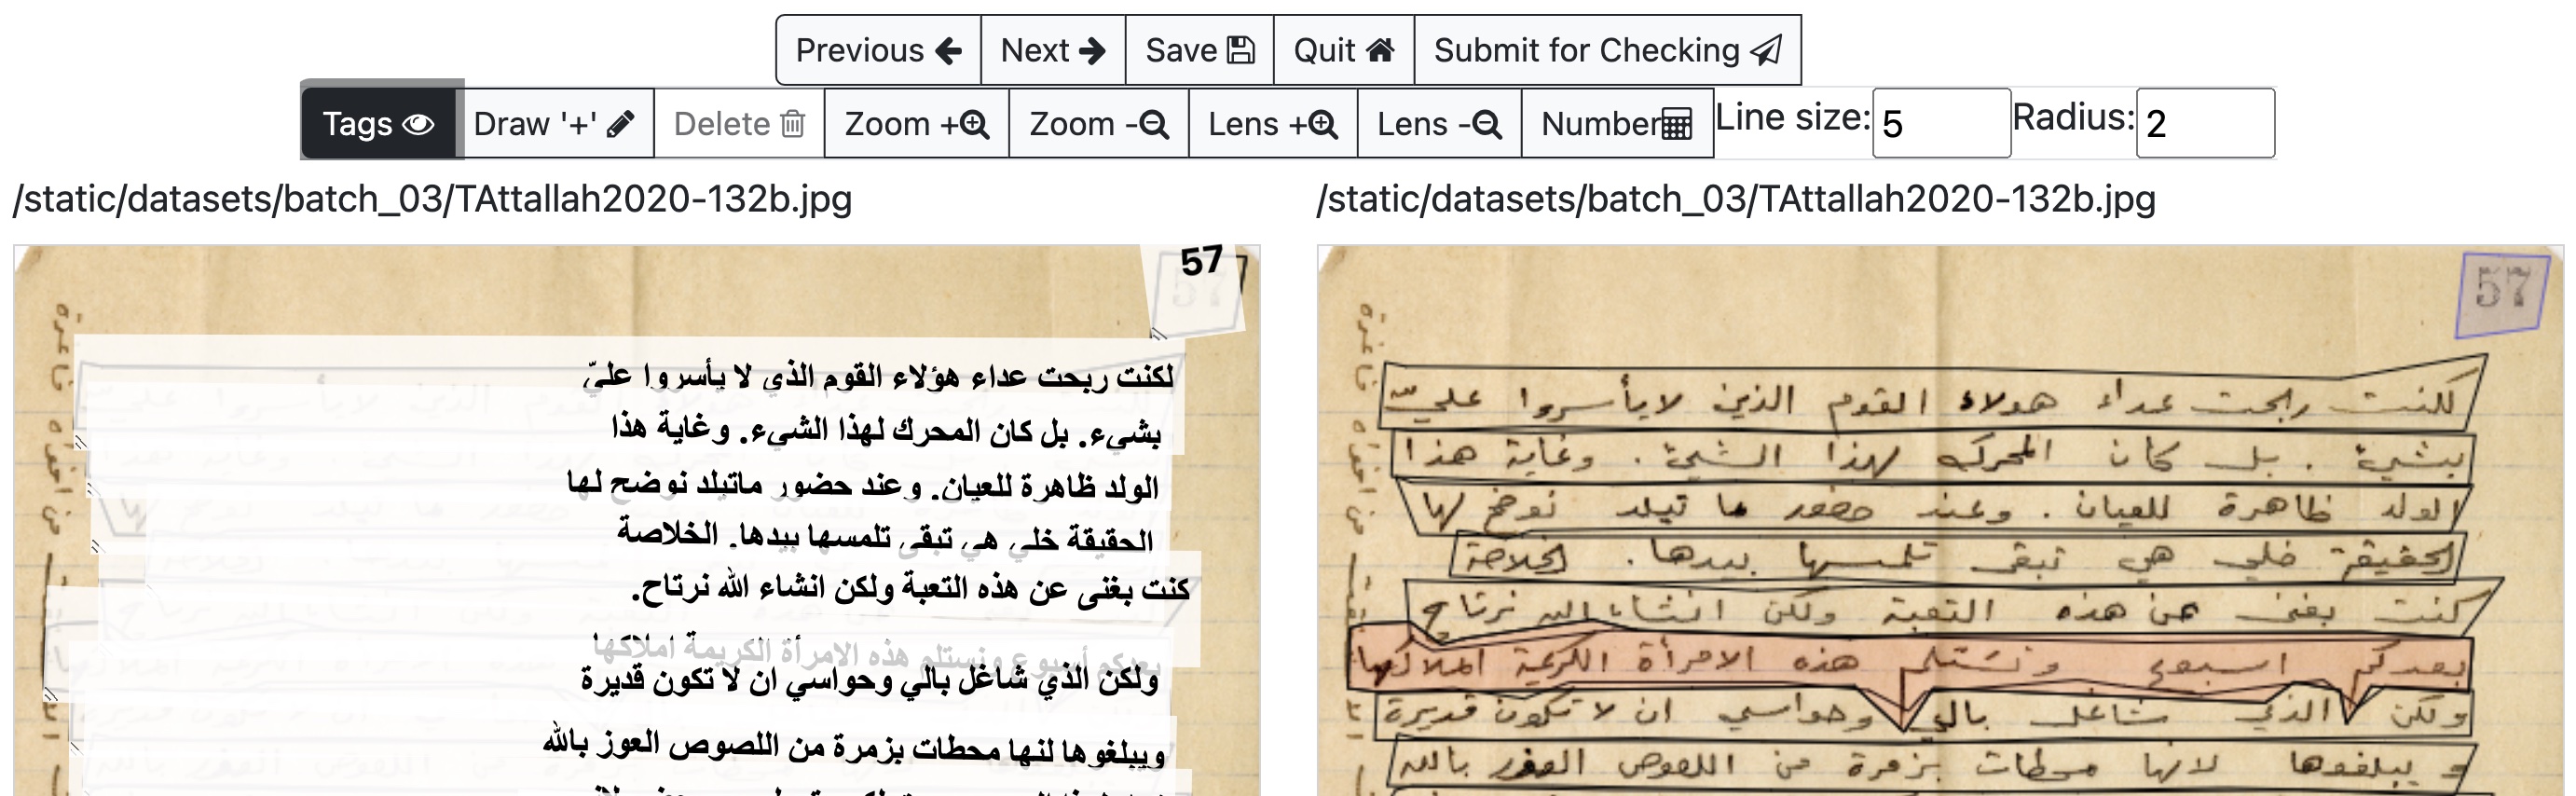 Previous Next Save Quit Submit for Checking
Tags Draw '+' Delete Zoom + Zoom - Lens + Lens - Number Line size: 5 Radius: 2
/static/datasets/batch_03/TAttallah2020-132b.jpg
57
لكنت ربحت عداء هؤلاء القوم الذي لا يأسروا عليّ
بشيء. بل كان المحرك لهذا الشيء. وغاية هذا
الولد ظاهرة للعيان. وعند حضور ماتيلد نوضح لها
الحقيقة خلي هي تبقى تلمسها بيدها. الخلاصة
كنت بغنى عن هذه التعبة ولكن انشاء الله نرتاح.
بعدكم أسبوع ونستلم هذه الامرأة الكريمة املاكها
ولكن الذي شاغل بالي وحواسي ان لا تكون قديرة
ويبلغوها لنها محطات بزمرة من اللصوص العوز بالله
/static/datasets/batch_03/TAttallah2020-132b.jpg
57
لكنت رابحت عداء هولاء القوم الذين لايأسروا عليّ
بشيء . بل كان المحرك لهذا الشيء . وغاية هذا
الولد ظاهرة للعيان . وعند حضور ما تيلد نوضح لها
الحقيقة خلي هي تبقى تلمسها بيدها . الخلاصة
كنت بغنى عن هذه التعبة ولكن انشاء الله نرتاح
بعدكم اسبوع ونستلم هذه الامرأة الكريمة املاكها
ولكن الذي شاغل بالي وحواسي ان لا تكون قديرة
و يبلغوها لانها محطات بزمرة من اللصوص بالله